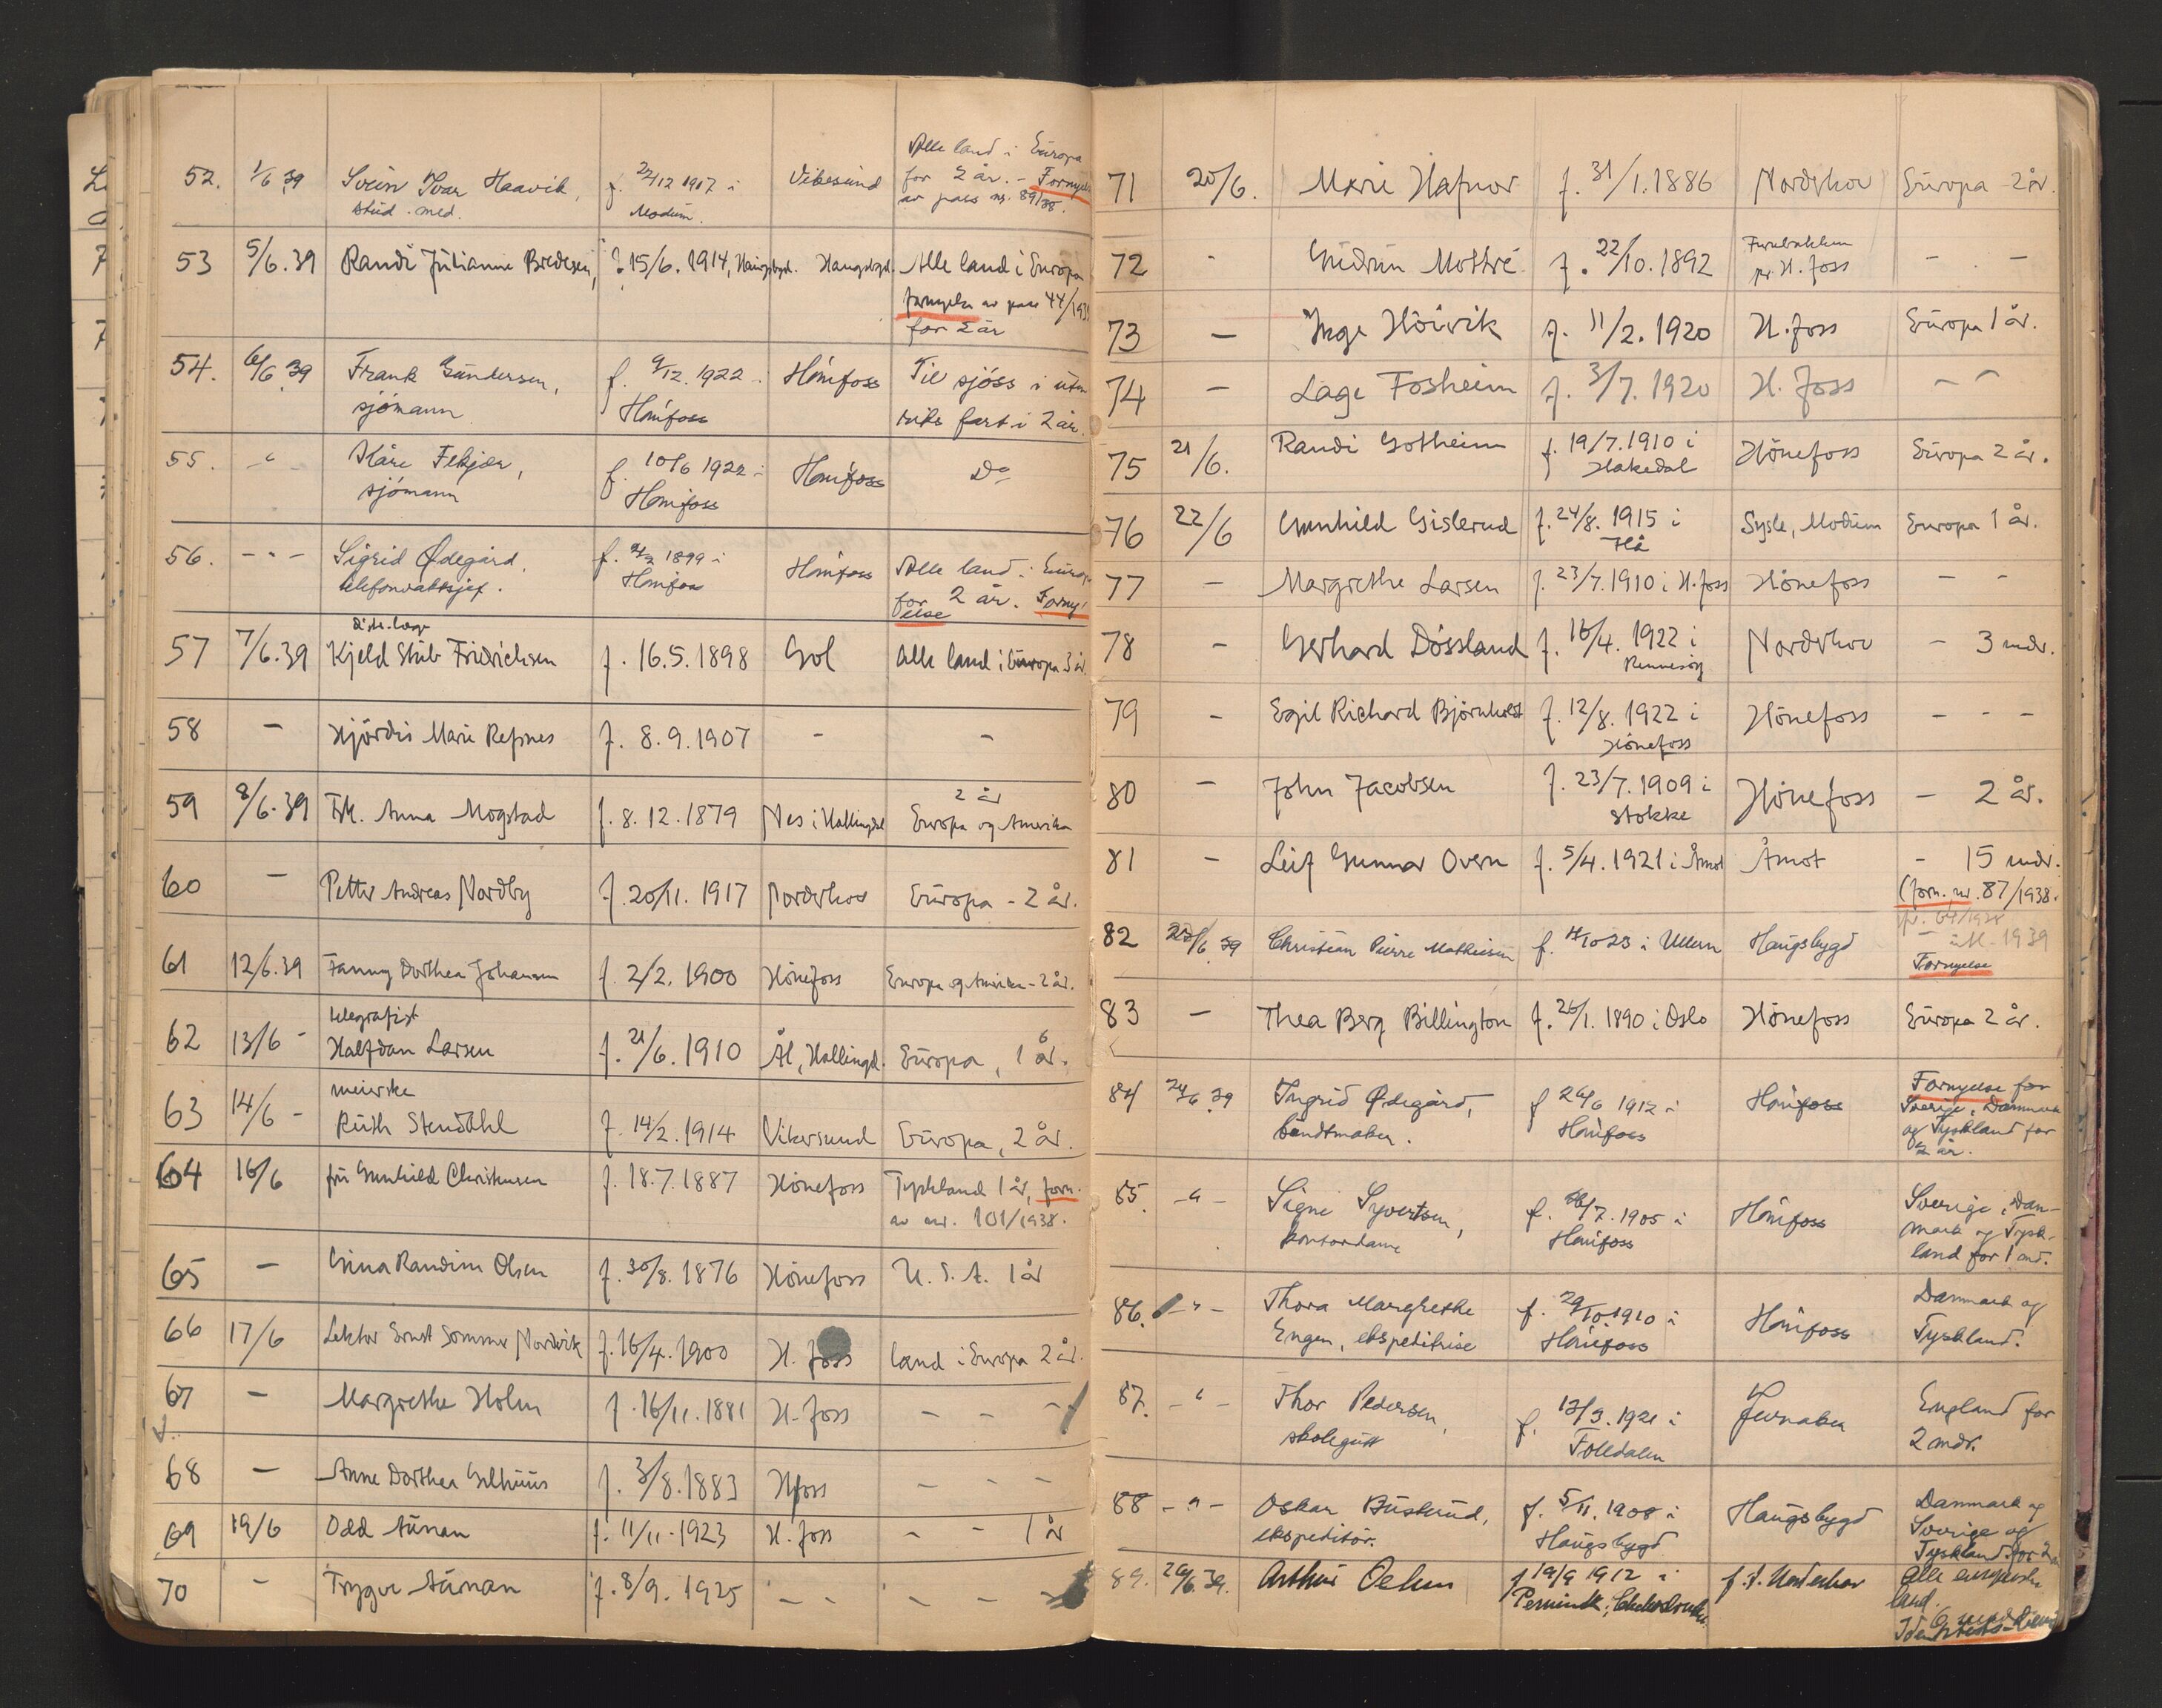 52. 1/6 39 Svein Ivar Haavik, f. 22/12 1917 i Vikesund Alle land i Europa
stud. med. Modum. for 2 år. - Fornyelse
av pass nr. 89/38.
53 5/6.39 Randi Julianne Bredesen, f 15/6. 1914, Haugsbygd. Haugsbygd. Alle land i Europa
fornyelse av pass 44/193
for 2 år
54. 6/6 39 Frank Gundersen, f. 9/12. 1922 i Hönefoss Til sjöss i uten
sjömann Hönefoss riks fart i 2 år.
55. - " - Kåre Fekjær, f. 10/6 1922 i Hönefoss Do
sjömann Hönefoss
56. - " - Sigrid Ødegård, f. 1899 i Hönefoss Alle land i Europa
telefonvaktsjef. Hönefoss for 2 år. Forny-
else
Distr.læge
57 7/6.39 Kjeld Stub Fridrichsen f. 16.5.1898 Gol Alle land i Europa 3 år.
58 - Hjördis Marie Refsnes f. 8.9.1907 - -
59 8/6.39 Frk. Anna Mogstad f. 8.12.1879 Nes i Hallingdal 2 år
Europa og Amerika
60 - Petter Andreas Nordby f. 20/11. 1917 Norderhov Europa - 2 år.
61 12/6.39 Fanny Dorthea Johansen f. 2/2. 1900 Hönefoss Europa og Amerika - 2 år.
telegrafist
62 13/6 - Halfdan Larsen f. 21/6. 1910 Ål, Hallingd. Europa, 1 år.
meierske
63 14/6 - Ruth Stendahl f. 14/2. 1914 Vikersund Europa, 2 år.
64 16/6 fru Gunhild Christensen f. 18.7.1887 Hönefoss Tyskland 1 år, forn.
av nr. 101/1938.
65 - Gina Randine Olsen f. 30/8. 1876 Hönefoss U.S.A. 1 år
66 17/6 Lektor Ernst Sommer Nordvik f. 16/4. 1900 H. foss land i Europa 2 år.
67 - Margrethe Holm f. 16/11. 1881 H. foss - - -
68 - Anne Dorthea Gulhuus f. 3/8. 1883 Hfoss - - -
69 19/6 Odd Aunan f. 11/11. 1923 H. foss - - 1 år
70 - Trygve Aunan f. 8/9. 1925 - - - - -
71 20/6. Marie Hafnor f. 31/1. 1886 Norderhov Europa - 2 år.
72 - Gudrun Mottré f. 22/10. 1892 Furubakken
pr. H. foss - - -
73 - Inge Höivik f. 11/2. 1920 H. foss Europa 1 år.
74 - Lage Fosheim f. 3/7. 1920 H. foss - -
75 21/6. Randi Gotheim f. 19/7. 1910 i Hönefoss Europa 2 år.
Hakedal
76 22/6 Gunhild Gislerud f. 24/8. 1915 i Sysle, Modum Europa 1 år.
Hå
77 - Margrethe Larsen f. 23/7. 1910 i H. foss Hönefoss - -
78 - Gerhard Dössland f. 16/4. 1922 i Norderhov - 3 mdr.
Rennesöy
79 - Egil Richard Björnholt f. 12/8. 1922 i Hönefoss - - -
Hönefoss
80 - John Jacobsen f. 23/7. 1909 i Hönefoss - 2 år.
Stokke
81 - Leif Gunnar Overn f. 5/4. 1921 i Åmot Åmot - 15 mdr.
(forn. nr. 87/1938.
82 23/6 39 Christian Pierre Mathiesen f. 10 23 i Ullern Haugsbygd 1939
Fornyelse
83 - Thea Berg Billington f. 26/1. 1890 i Oslo Hönefoss Europa 2 år.
84 24/6 39 Ingrid Ødegård, f 26/6 1912 i Hönefoss Fornyelse for
buntmaker. Hönefoss Sverige, Danmark
og Tyskland for
2 år.
85. - " - Signe Syvertsen, f. /7. 1905 i Hönefoss Sverige, Dan-
kontordame Hönefoss mark og Tysk-
land for 1 md.
86. - " - Thora Margrethe f. 29/10. 1910 i Hönefoss Danmark og
Engen, ekspeditrise Hönefoss Tyskland.
87. - " - Thor Pedersen, f. 13/9. 1921 i Jevnaker England for
skolegutt Folldalen 2 mdr.
88 - " - Oskar Buskrud, f. 5/11. 1908 i Haugsbygd Danmark og
ekspeditör. Haugsbygd Sverige og
Tyskland for 2
89. 26/6 39. Arthur Oehm f 19/9 1912 i f. t. Norderhov Alle europeiske
Pernink, land.
6 mnd.
Identitets-